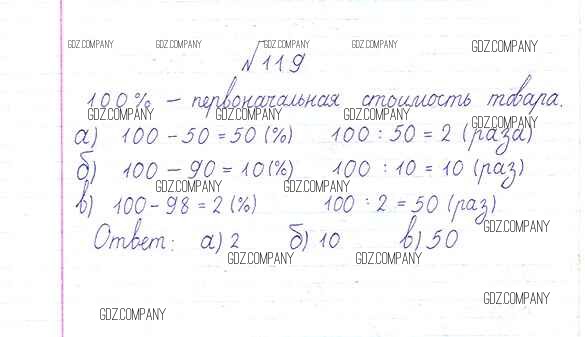 GDZ.COMPANY GDZ.COMPANY GDZ.COMPANY GDZ.COMPANY GDZ.COMPANY
№119
100% – первоначальная стоимость товара.
GDZ.COMPANY GDZ.COMPANY GDZ.COMPANY GDZ.COMPANY
а) 100 – 50 = 50 (%) 100 : 50 = 2 (раза)
б) 100 – 90 = 10 (%) 100 : 10 = 10 (раз)
GDZ.COMPANY GDZ.COMPANY
в) 100 – 98 = 2 (%) 100 : 2 = 50 (раз)
GDZ.COMPANY
Ответ: а) 2 б) 10 в) 50
GDZ.COMPANY GDZ.COMPANY
GDZ.COMPANY
GDZ.COMPANY